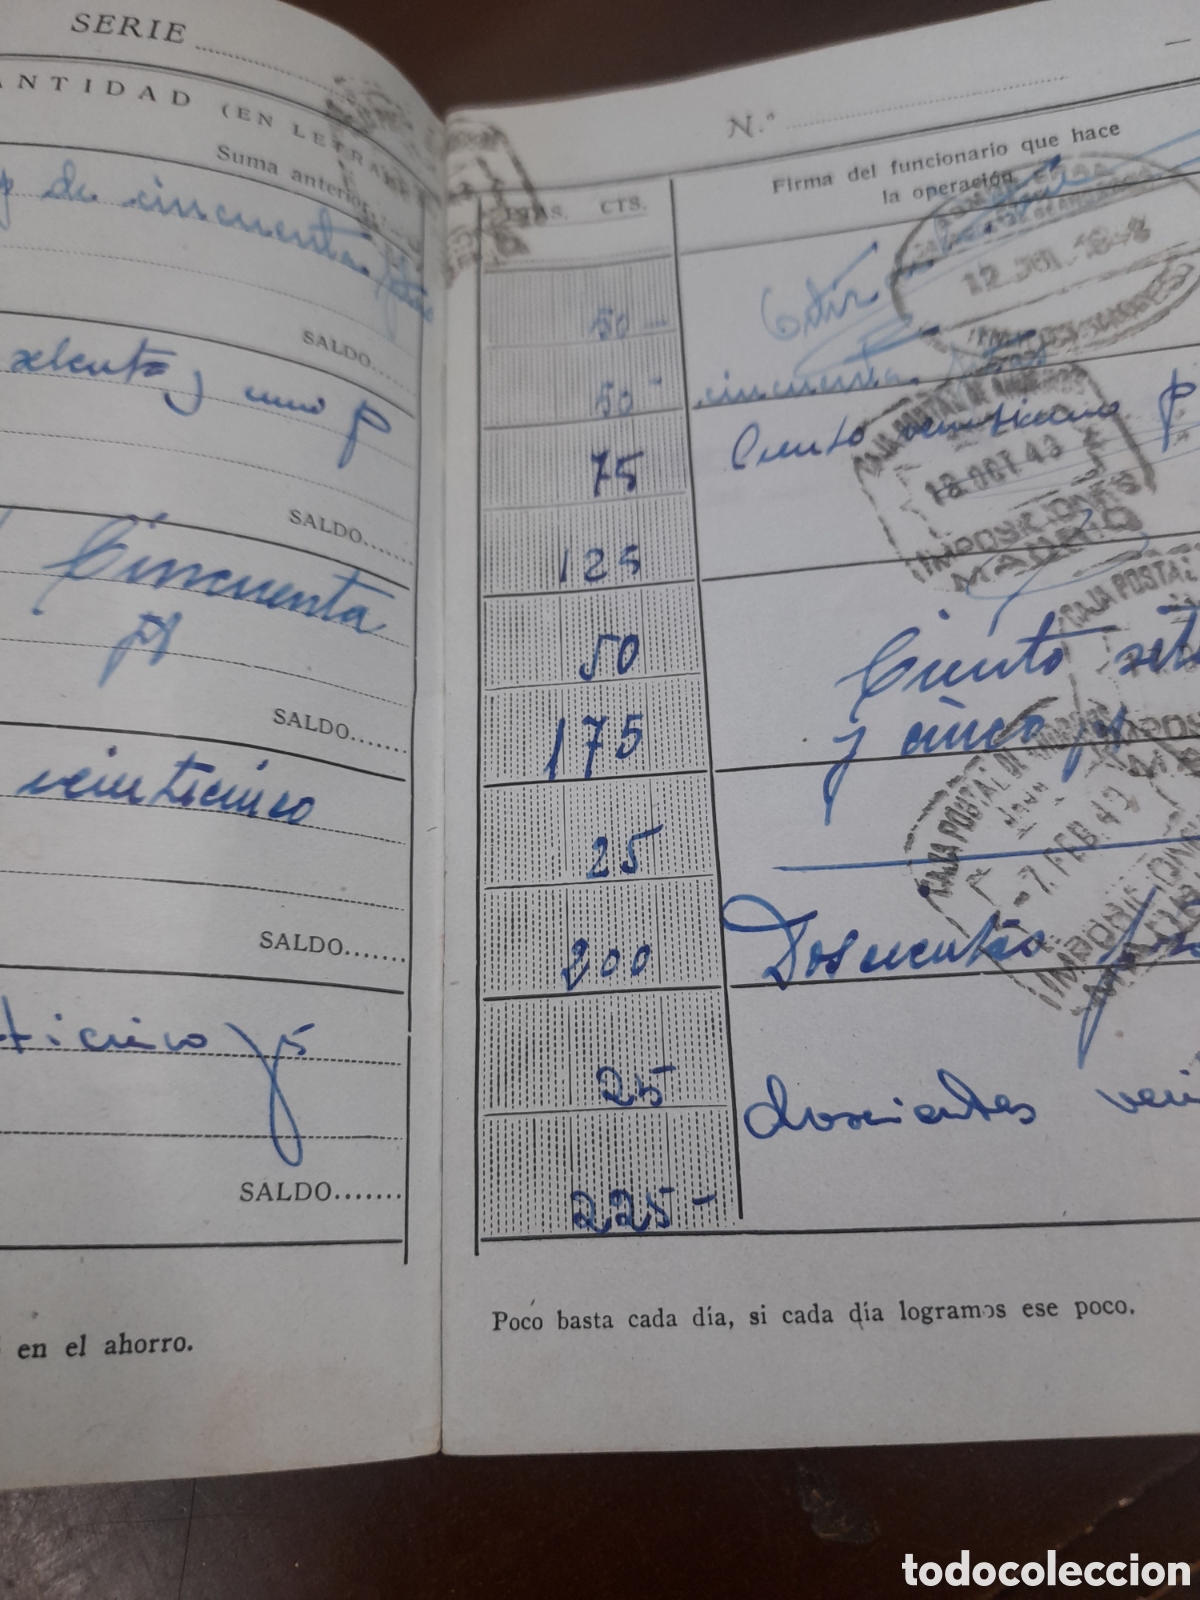 SERIE
ANTIDAD (EN LETRA
Suma anterior
y de cincuenta ptas
SALDO
setenta y cinco p
SALDO
Cincuenta
pts
SALDO
veinticinco
SALDO
ticinco pts
SALDO
en el ahorro.
N.º
PTAS. CTS.
Firma del funcionario que hace
la operación
50
50
cincuenta
75
Ciento veinticinco p
125
50
175
Ciento sete
y cinco pts
25
200
Doscientas
25
doscientas vein
225
12 JUL 1948
CAJA POSTAL DE AHORROS
18 OCT 48
IMPOSICIONES
MADRID
CAJA POSTAL
CAJA POSTAL DE AHORROS
7 FEB. 49
IMPOSICIONES
Poco basta cada día, si cada día logramos ese poco.
todocoleccion